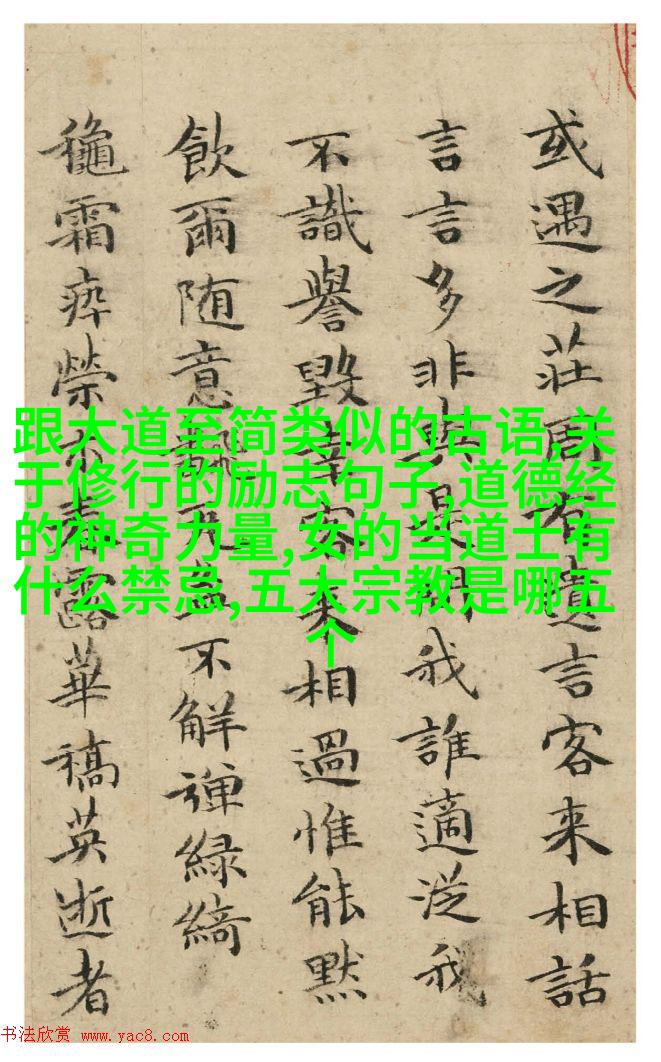 或遇之莊周有言客来相話
言言多非與是我誰適從我
不識譽毀客来相過惟能默
飲爾随意不解彈綠綺
龝霜瘁榮木春露華稿英逝者
跟大道至简类似的古语,关
于修行的励志句子,道德经
的神奇力量,女的当道士有
什么禁忌,五大宗教是哪五
个
书法欣赏 www.yac8.com